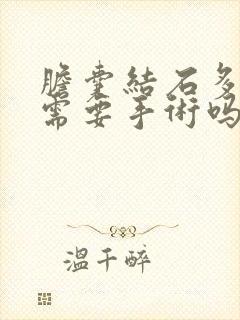 膽囊結石多
需要手術嗎
溫千醉